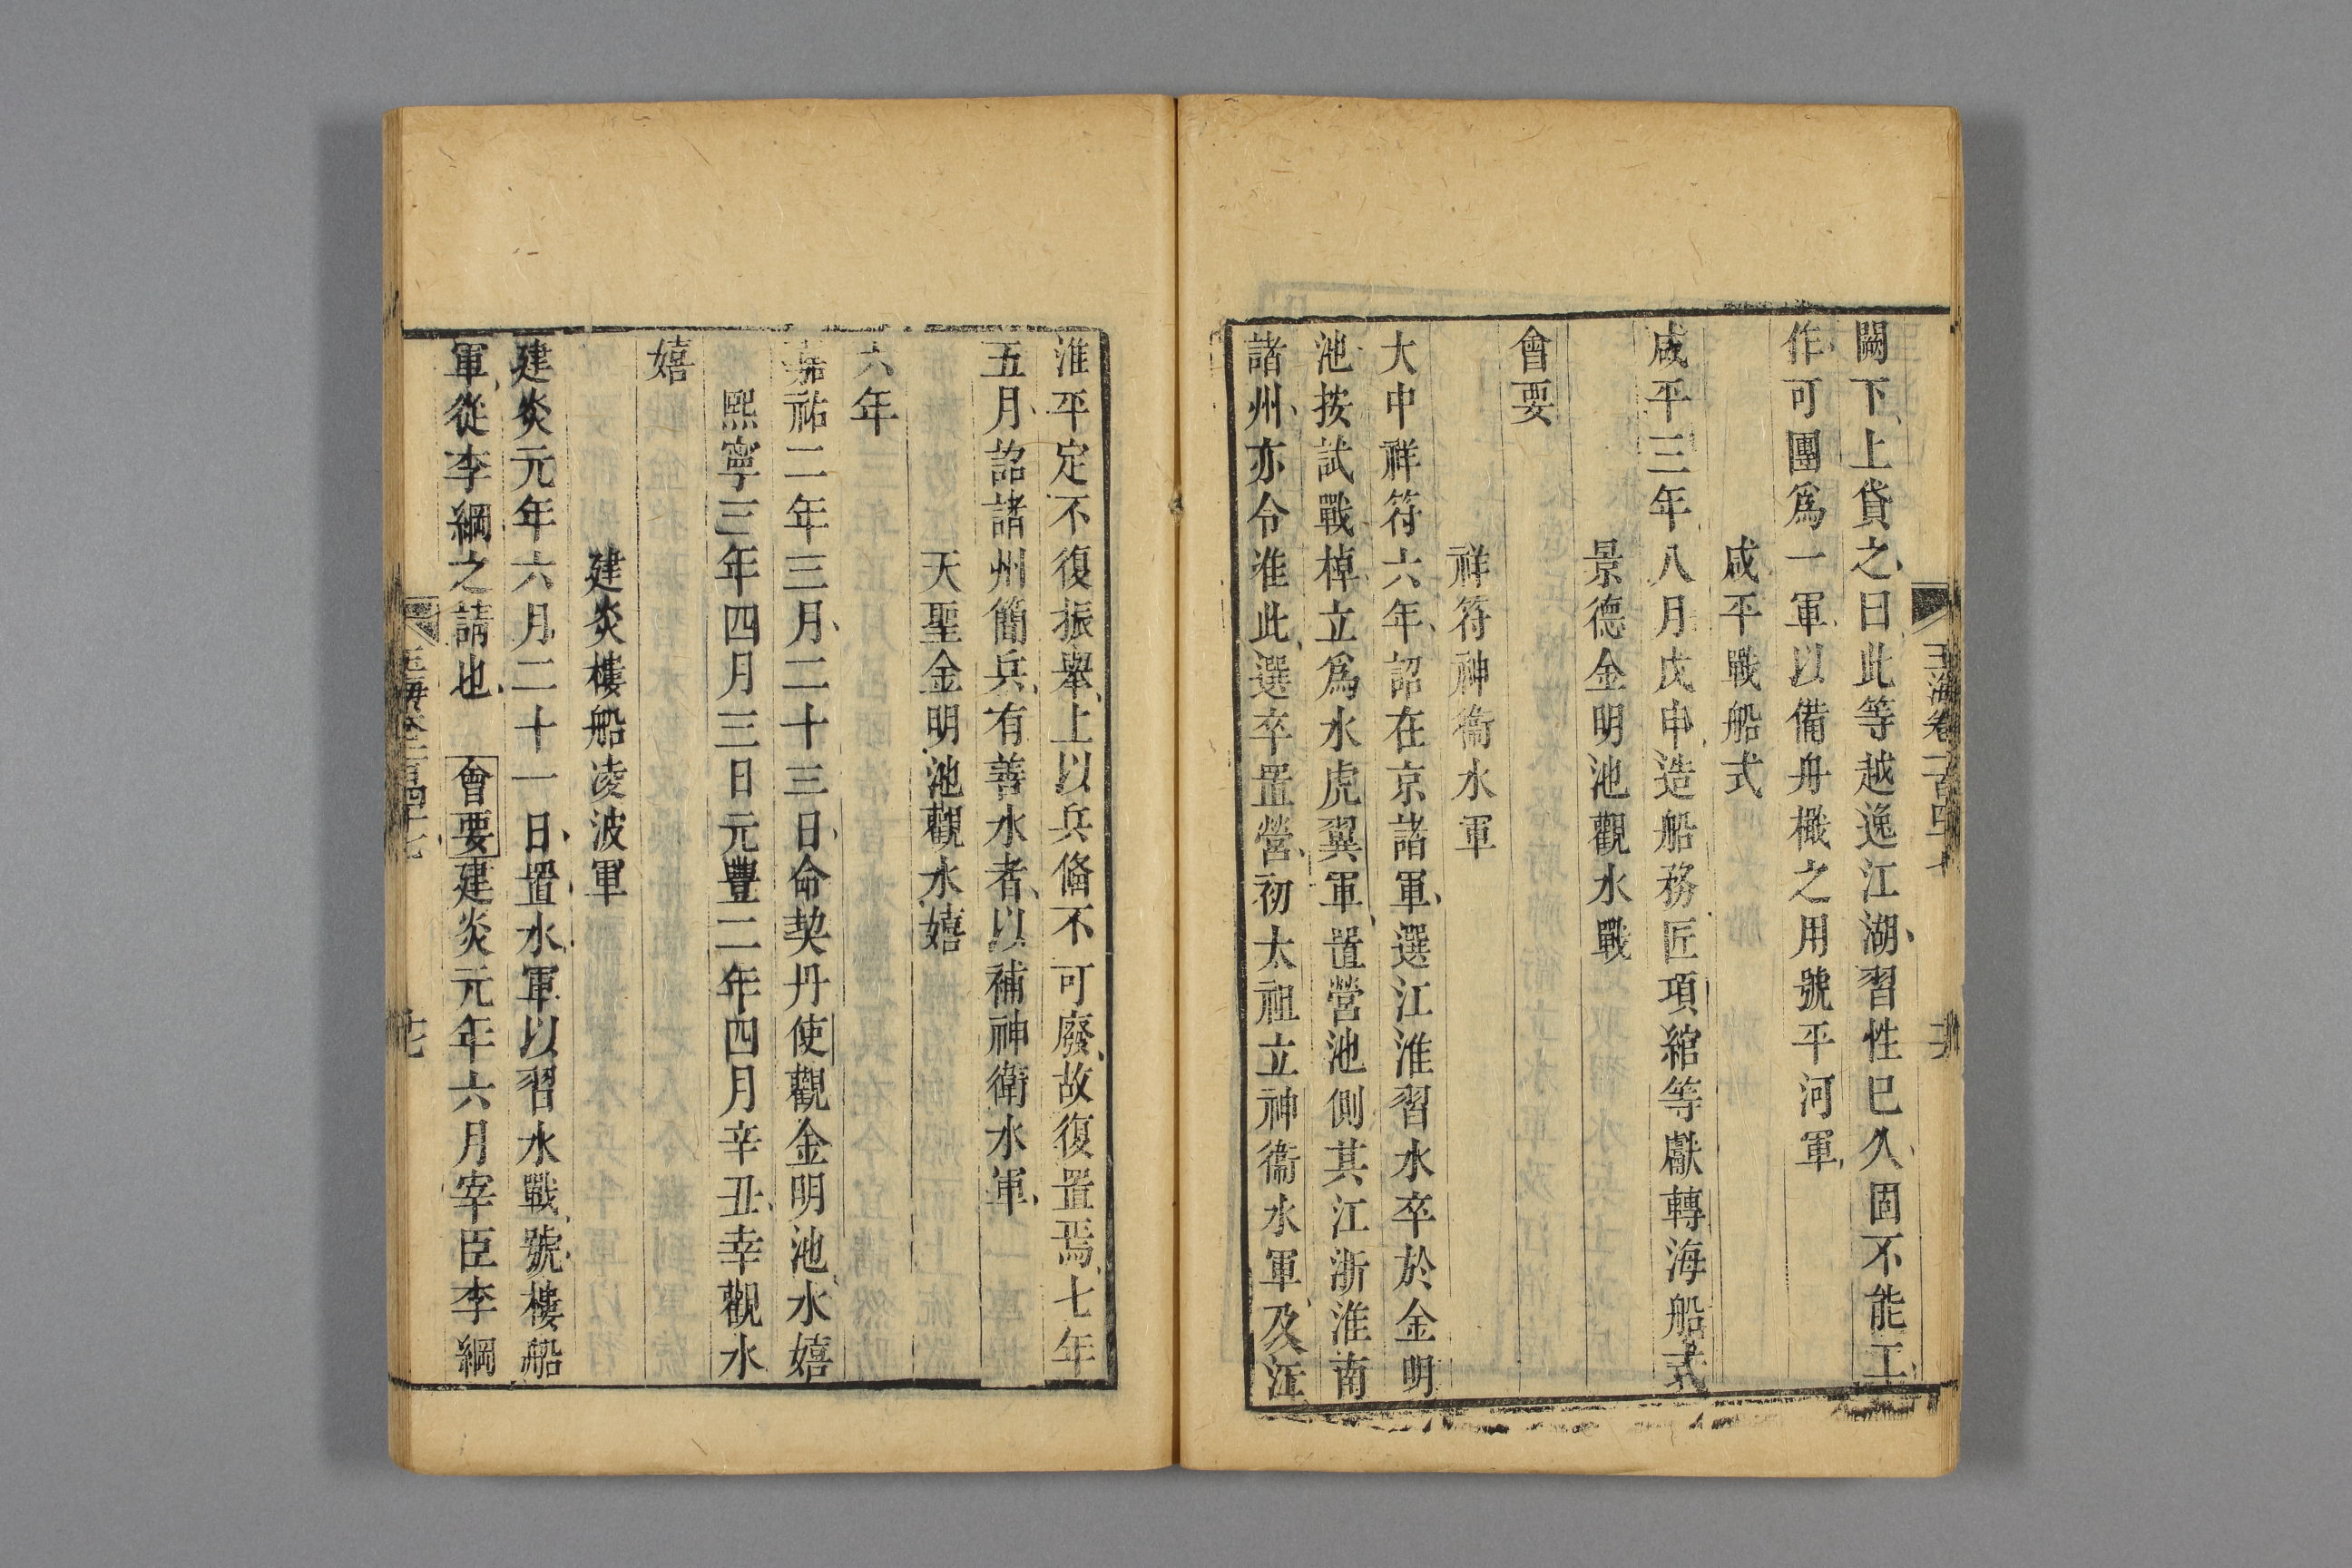 闕下上貸之曰此等越逸江湖習性已久固不能工
作可團爲一軍以備舟檝之用號平河軍
咸平戰船式
咸平三年八月戊申造船務匠項綰等獻轉海船式
景德金明池觀水戰
會要
祥符神衞水軍
大中祥符六年詔在京諸軍選江淮習水卒於金明
池按試戰棹立爲水虎翼軍置營池側其江浙淮南
諸州亦令准此選卒置營初太祖立神衞水軍及江
淮平定不復振舉上以兵備不可廢故復置焉七年
五月詔諸州簡兵有善水者以補神衛水軍
天聖金明池觀水嬉
六年
嘉祐二年三月二十三日命契丹使觀金明池水嬉
熙寧三年四月三日元豐二年四月辛丑幸觀水
嬉
建炎樓船凌波軍
建炎元年六月二十一日置水軍以習水戰號樓船
軍從李綱之請也 會要建炎元年六月宰臣李綱
玉海卷一百四十七